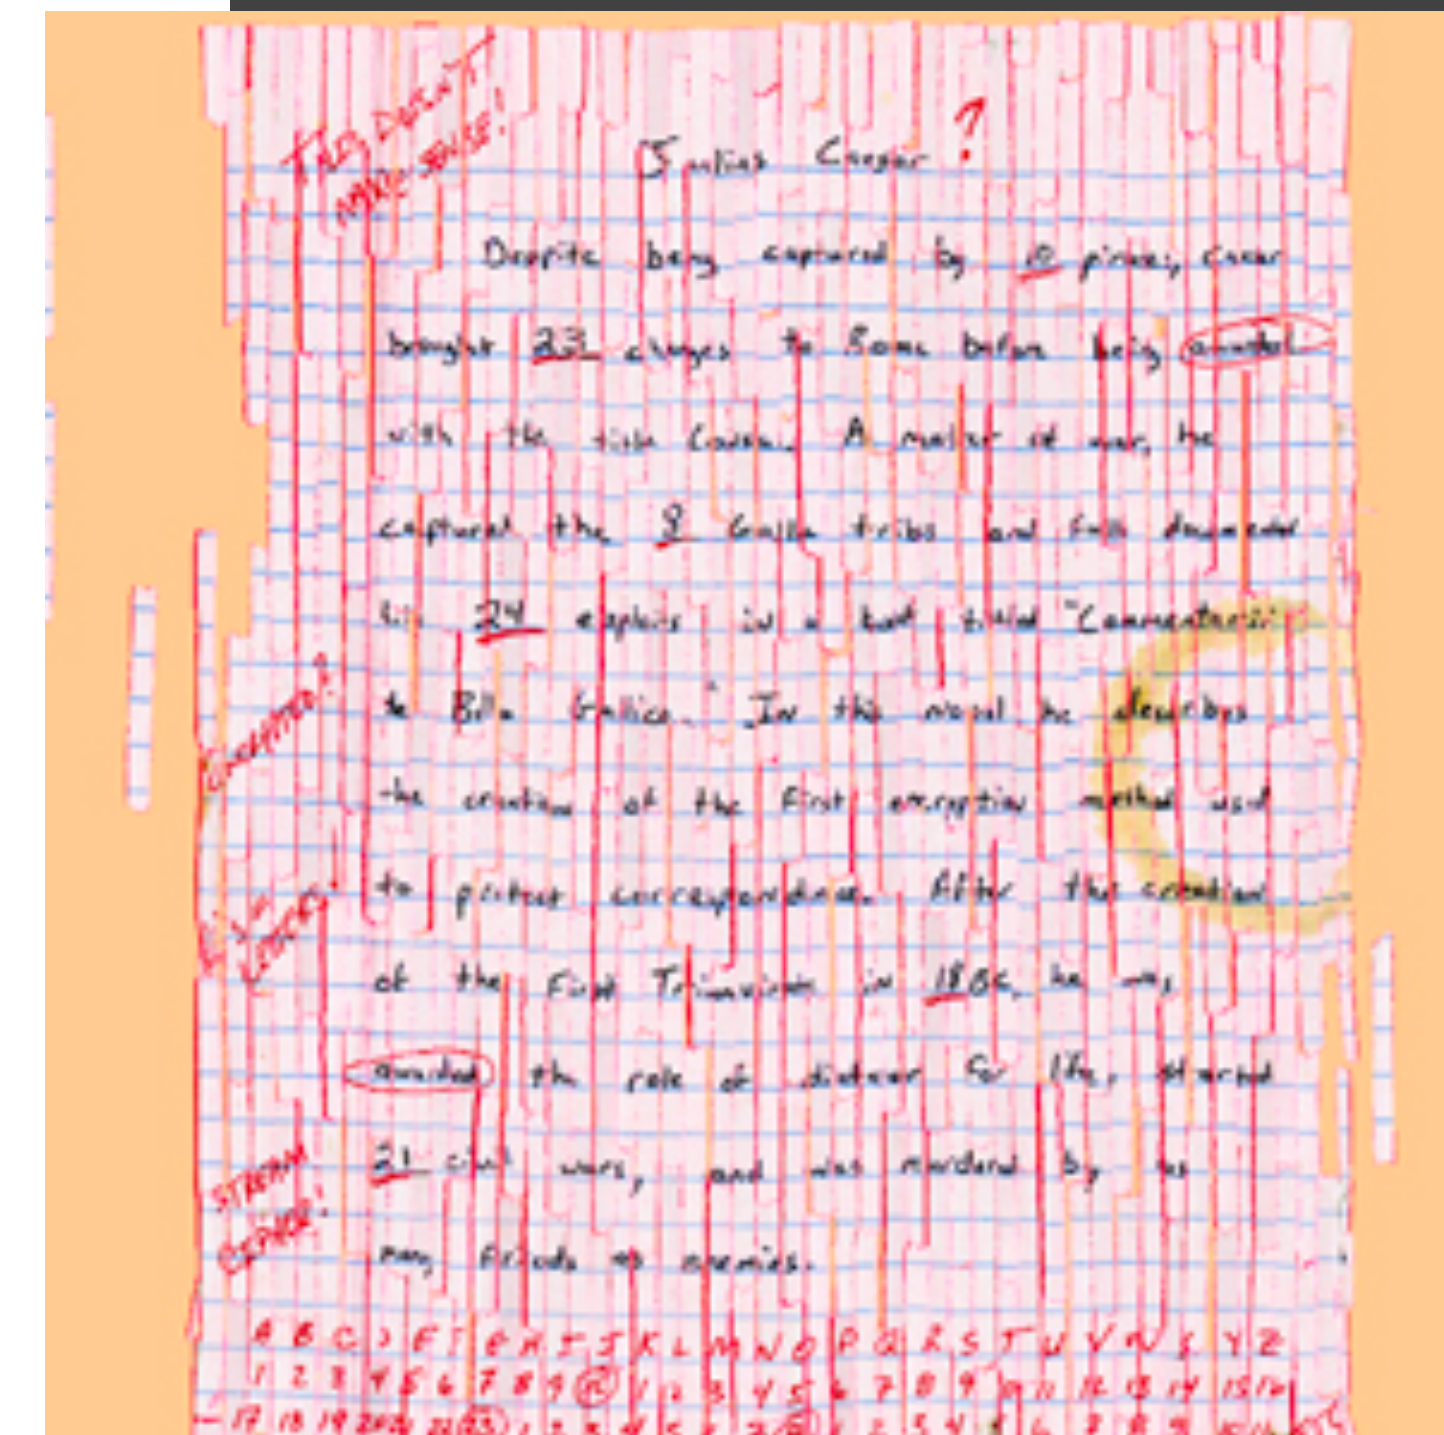 THIS DOESN'T
MAKE SENSE!
Julius Caesar ?
Despite being captured by 10 pirates, Caesar
brought 23 charges to Rome before being awarded
with the title Consul. A master of war, he
captured the 9 Gallic tribs and fully documented
his 24 exploits in a book titled "Commentarii
de Bello Gallico." In this novel he describes
the creation of the first encryption method used
to protect correspondence. After the creation
of the First Triumvirate in 18 BC, he was
awarded the role of dictator for life, started
21 civil wars, and was murdered by as
many friends as enemies.
STREAM
CIPHER!
A B C D E F G H I J K L M N O P Q R S T U V W X Y Z
1 2 3 4 5 6 7 8 9 10 1 2 3 4 5 6 7 8 9 10 11 12 13 14 15 16
17 18 19 20 21 22 23 1 2 3 4 5 6 7 8 9